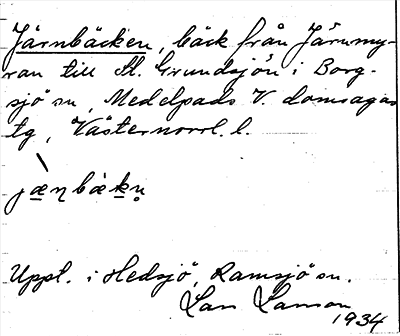 Järnbäcken, bäck från Järnmy-
ran till St. Grundsjön i Borg-
sjö sn, Medelpads V. domsagas
tg, Västernorrl. l.
jæn bækn̥
Uppl. i Hedsjö, Ramsjö sn.
Lars Larsson
1934